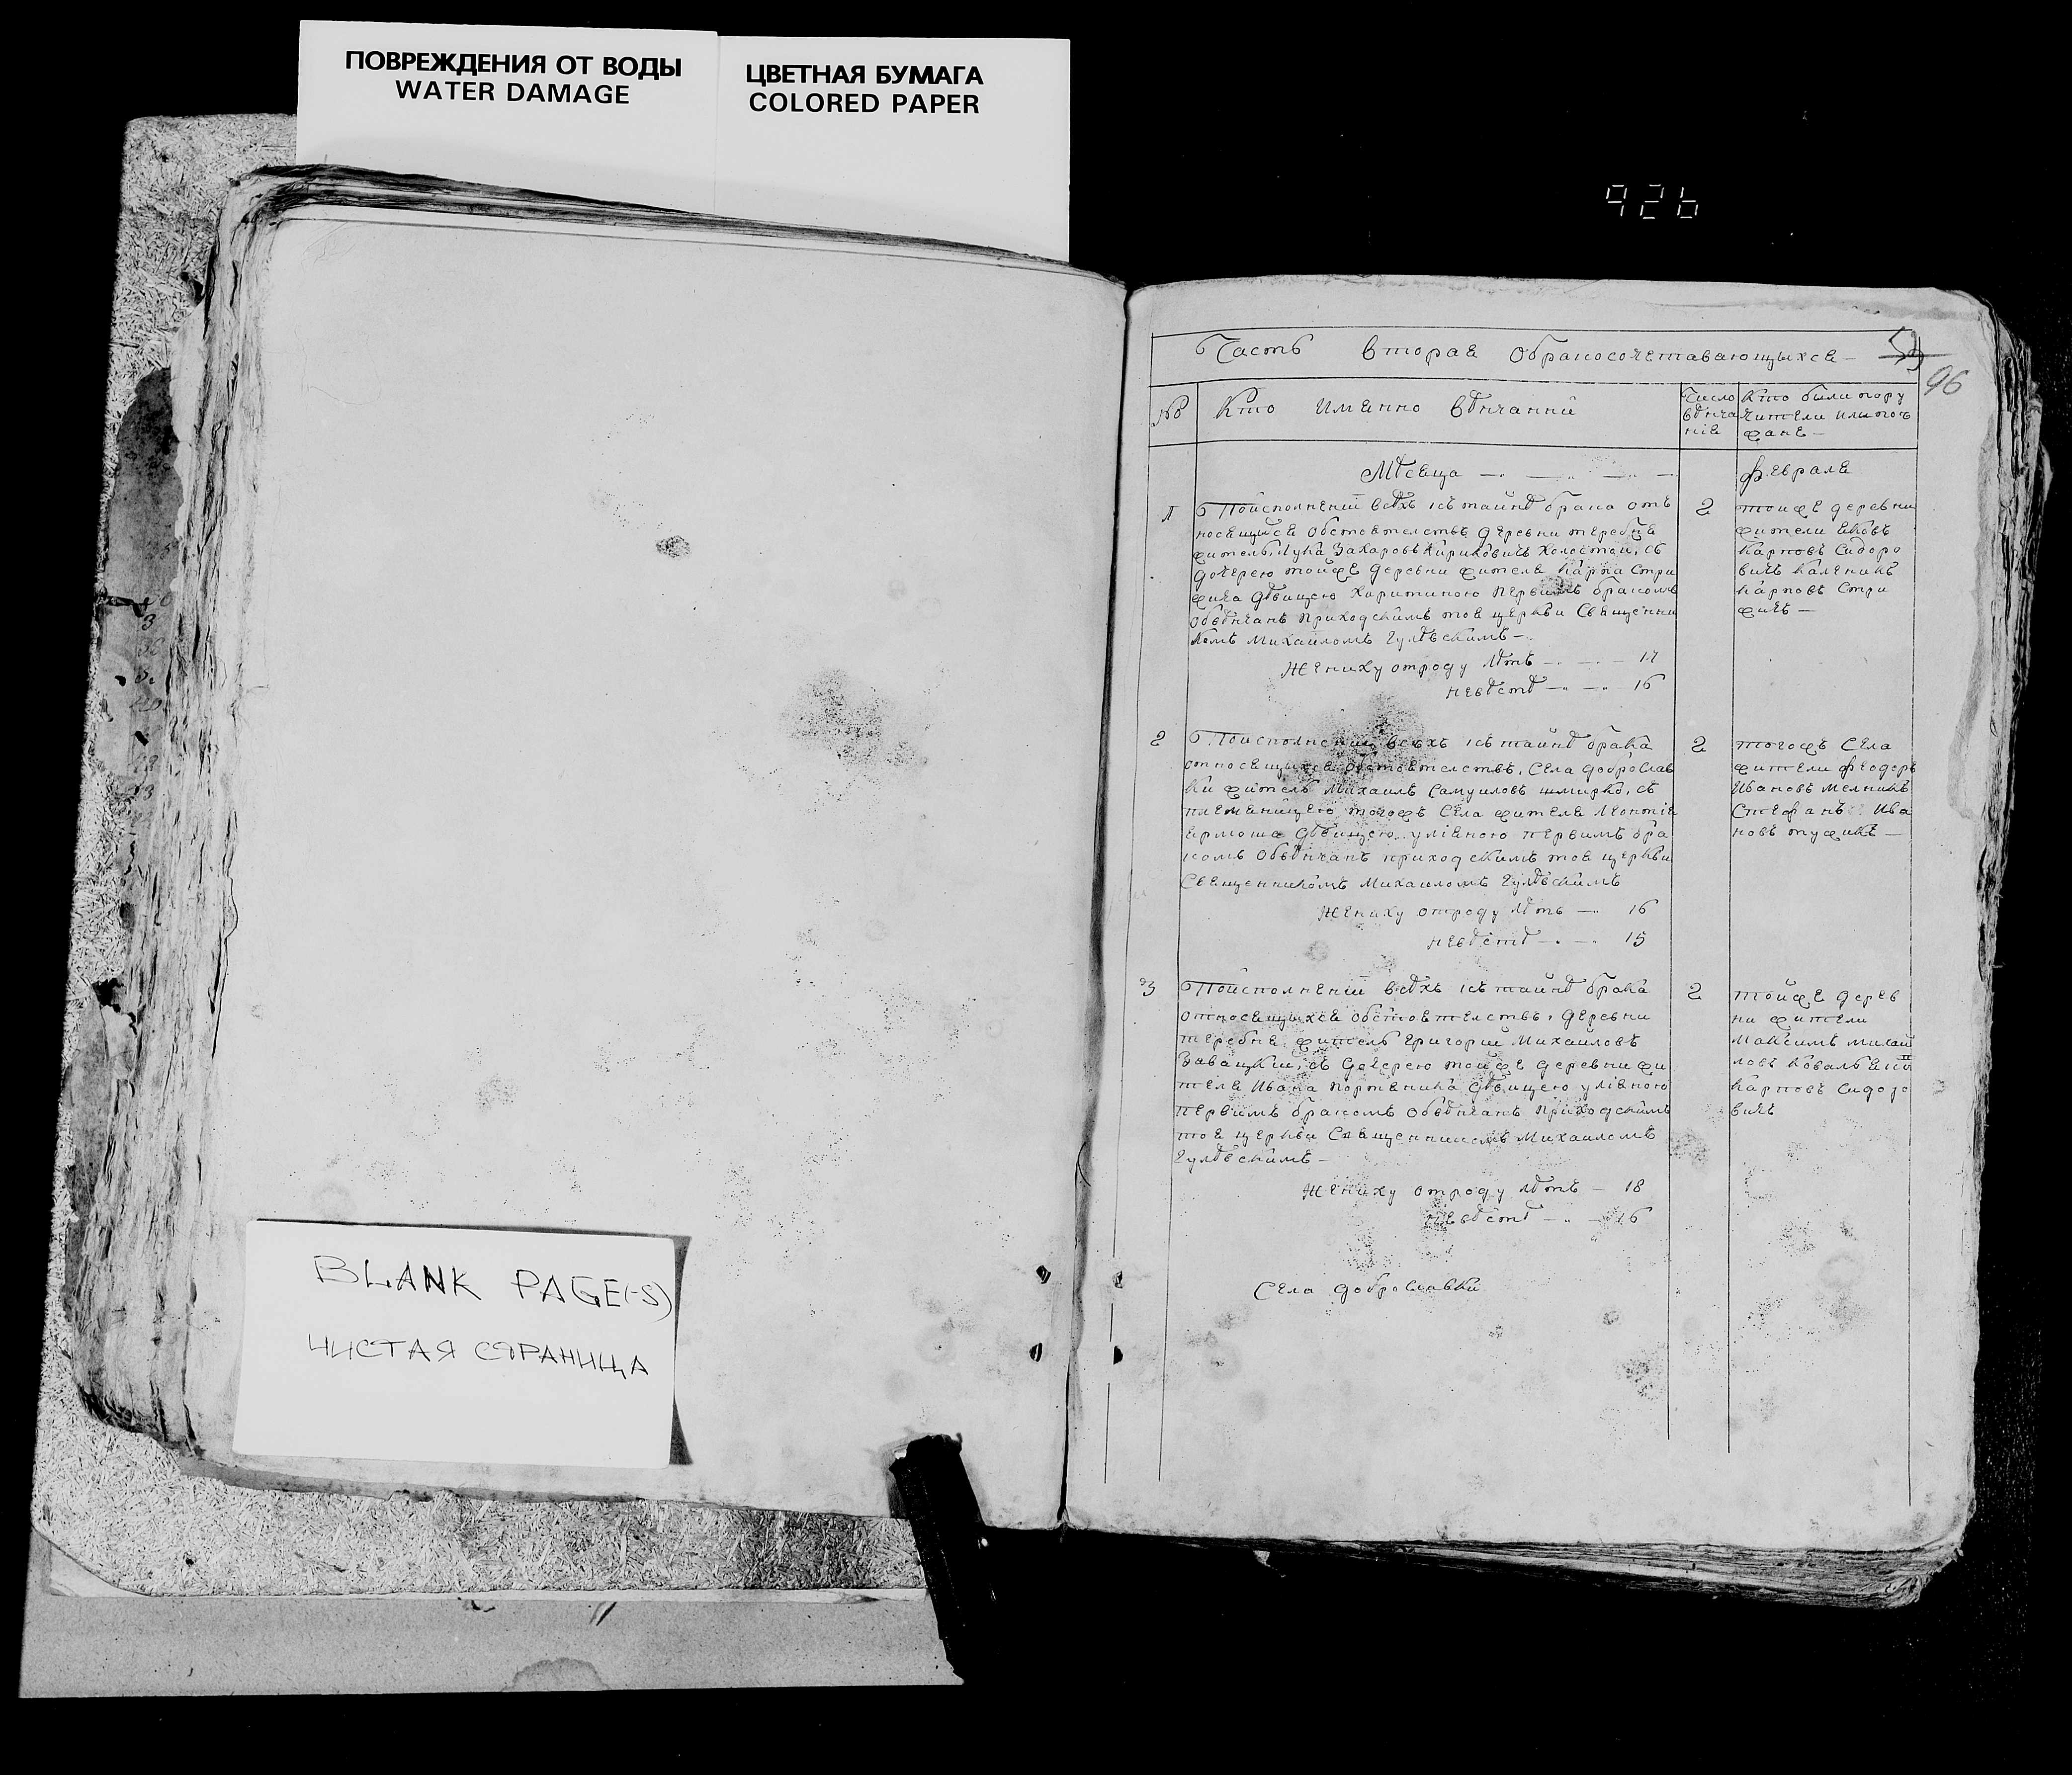 ПОВРЕЖДЕНИЯ ОТ ВОДЫ
WATER DAMAGE
ЦВЕТНАЯ БУМАГА
COLORED PAPER
926
Часть вторая о бракосочетавающыхся
96
№
Кто именно вѣнчанни
Число
вѣнча
нія
Кто были пору
чители или поѣ
жане
Мѣсяца
февраля
1
По исполненіи всѣхъ къ тайнѣ брака отъ
носящыхся обстоятелствъ деревни теребня
житель Лука Захаровъ Кириковичъ холостой, съ
дочерею тойже деревни жителя Карпа Стри
жича дѣвицею Харитиною первимъ бракомъ
обвѣнчанъ приходскимъ тоя церкви священни
комъ Михаиломъ Гулѣвскимъ
Жениху отроду лѣтъ 17
невѣстѣ 16
2
тойже деревни
жители Яковъ
Карповъ Сидоро
вичъ Каленикъ
Карповъ Стри
жичъ
2
По исполнении всѣхъ къ тайнѣ брака
относящыхся обстоятелствъ, Села Доброслав
ки житель Михаилъ Самуиловъ шмирко, съ
племяницею тогожъ Села жителя Леонтія
Ярмоша дѣвицею уліяною первимъ бра
комъ обвѣнчанъ приходскимъ тоя церкви
Священникомъ Михаиломъ Гулѣвскимъ
Жениху отроду лѣтъ 16
невѣстѣ 15
2
тогожъ Села
жители Феодоръ
Ивановъ Мелникъ
Стефанъ Ива
новъ тужикъ
3
По исполненіи всѣхъ къ тайнѣ брака
относящыхся обстоятелствъ, деревни
теребня житель Григорий Михаиловъ
Завацкий, съ дочерею тойже деревни жи
теля Ивана Портяника дѣвицею уліяною
первимъ бракомъ обвѣнчанъ приходскимъ
тоя церкви Священникомъ Михаиломъ
Гулѣвскимъ
Жениху отроду лѣтъ 18
невѣстѣ 16
2
тойже дерев
ни жители
Максимъ михаи
ловъ Коваль
Карповъ Сидоро
вичъ
Села Доброславки
BLANK PAGE(-S)
ЧИСТАЯ СТРАНИЦА